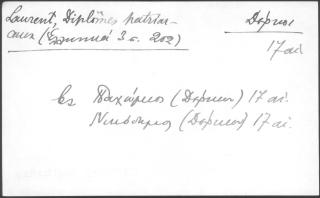 Laurent, Diplômes patriar-
caux (Ἑλληνικά 3 σ. 202)
Δόρκοι
17 αἰ.
Εκ Παχώμιος (Δορκων) 17 αἰ.
Νικόδημος (Δόρκων) 17 αἰ.